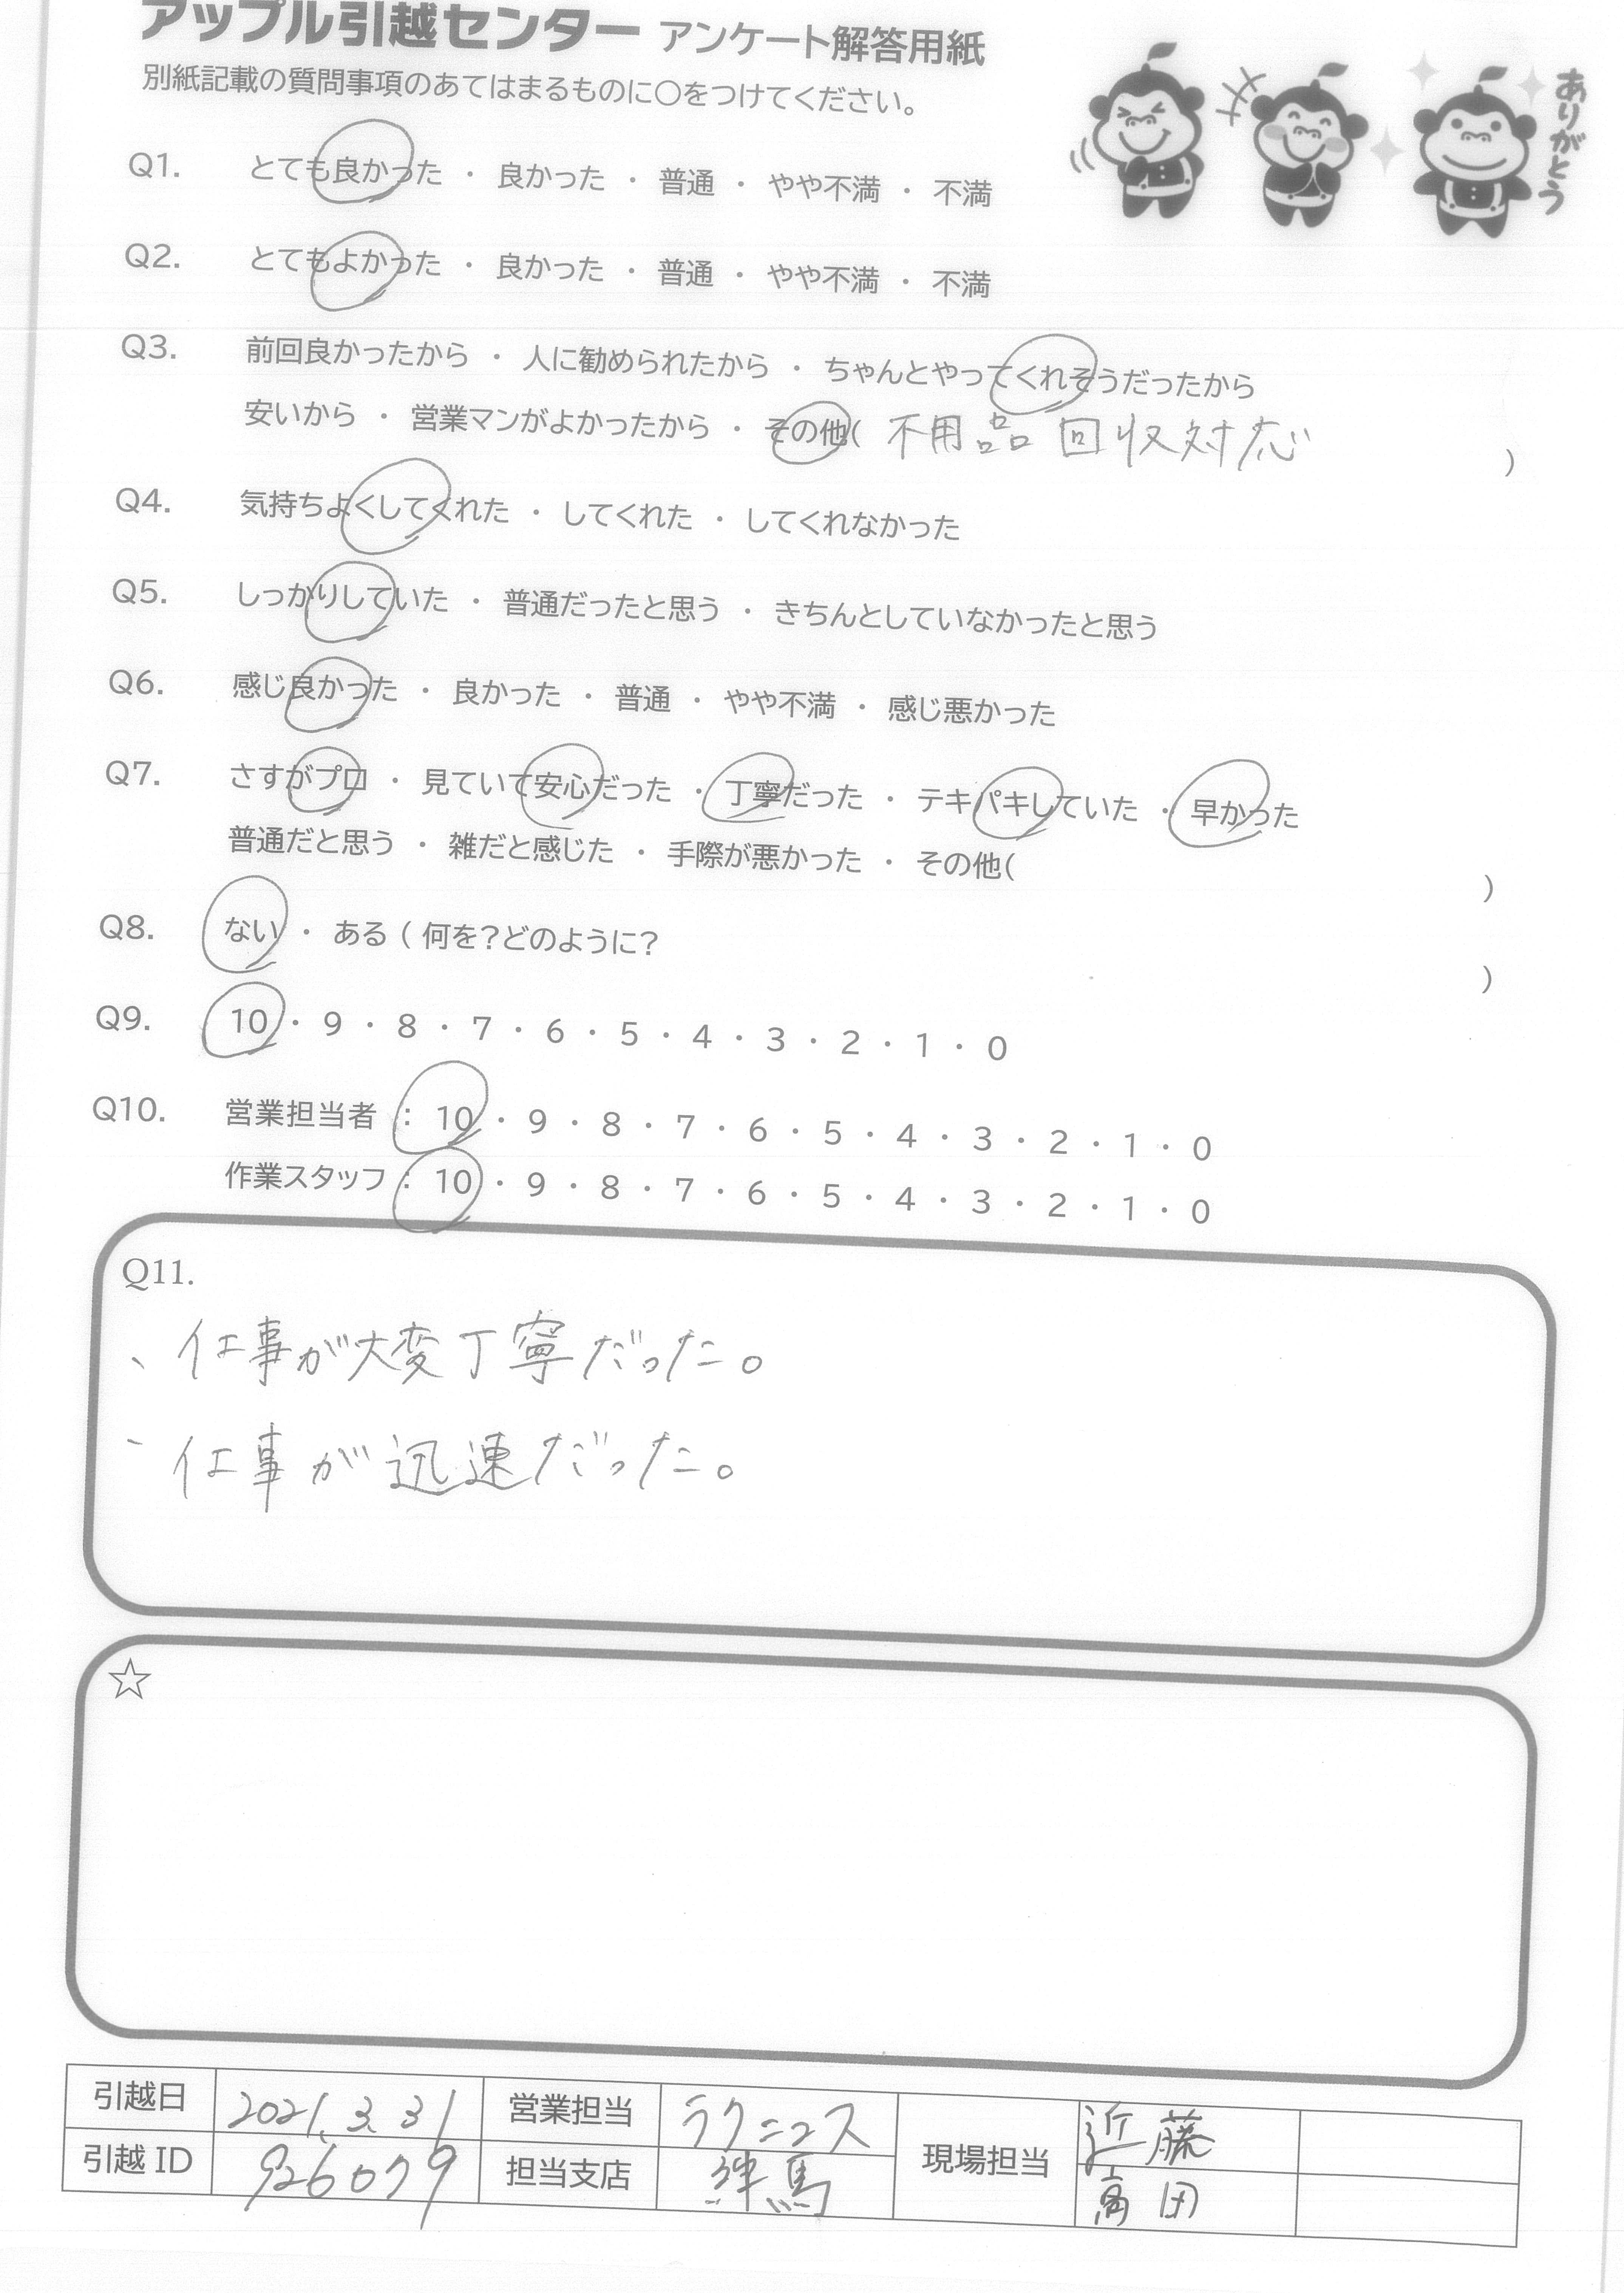 アップル引越センター アンケート解答用紙
別紙記載の質問事項のあてはまるものに○をつけてください。
ありがとう
Q1. とても良かった ・ 良かった ・ 普通 ・ やや不満 ・ 不満
Q2. とてもよかった ・ 良かった ・ 普通 ・ やや不満 ・ 不満
Q3. 前回良かったから ・ 人に勧められたから ・ ちゃんとやってくれそうだったから
安いから ・ 営業マンがよかったから ・ その他( 不用品回収対応 )
Q4. 気持ちよくしてくれた ・ してくれた ・ してくれなかった
Q5. しっかりしていた ・ 普通だったと思う ・ きちんとしていなかったと思う
Q6. 感じ良かった ・ 良かった ・ 普通 ・ やや不満 ・ 感じ悪かった
Q7. さすがプロ ・ 見ていて安心だった ・ 丁寧だった ・ テキパキしていた ・ 早かった
普通だと思う ・ 雑だと感じた ・ 手際が悪かった ・ その他( )
Q8. ない ・ ある ( 何を?どのように? )
Q9. 10 ・ 9 ・ 8 ・ 7 ・ 6 ・ 5 ・ 4 ・ 3 ・ 2 ・ 1 ・ 0
Q10. 営業担当者 : 10 ・ 9 ・ 8 ・ 7 ・ 6 ・ 5 ・ 4 ・ 3 ・ 2 ・ 1 ・ 0
作業スタッフ : 10 ・ 9 ・ 8 ・ 7 ・ 6 ・ 5 ・ 4 ・ 3 ・ 2 ・ 1 ・ 0
Q11.
、仕事が大変丁寧だった。
、仕事が迅速だった。
☆
引越日 2021.3.31 営業担当 ラクニコス 現場担当 近藤
引越 ID 926079 担当支店 練馬 高田